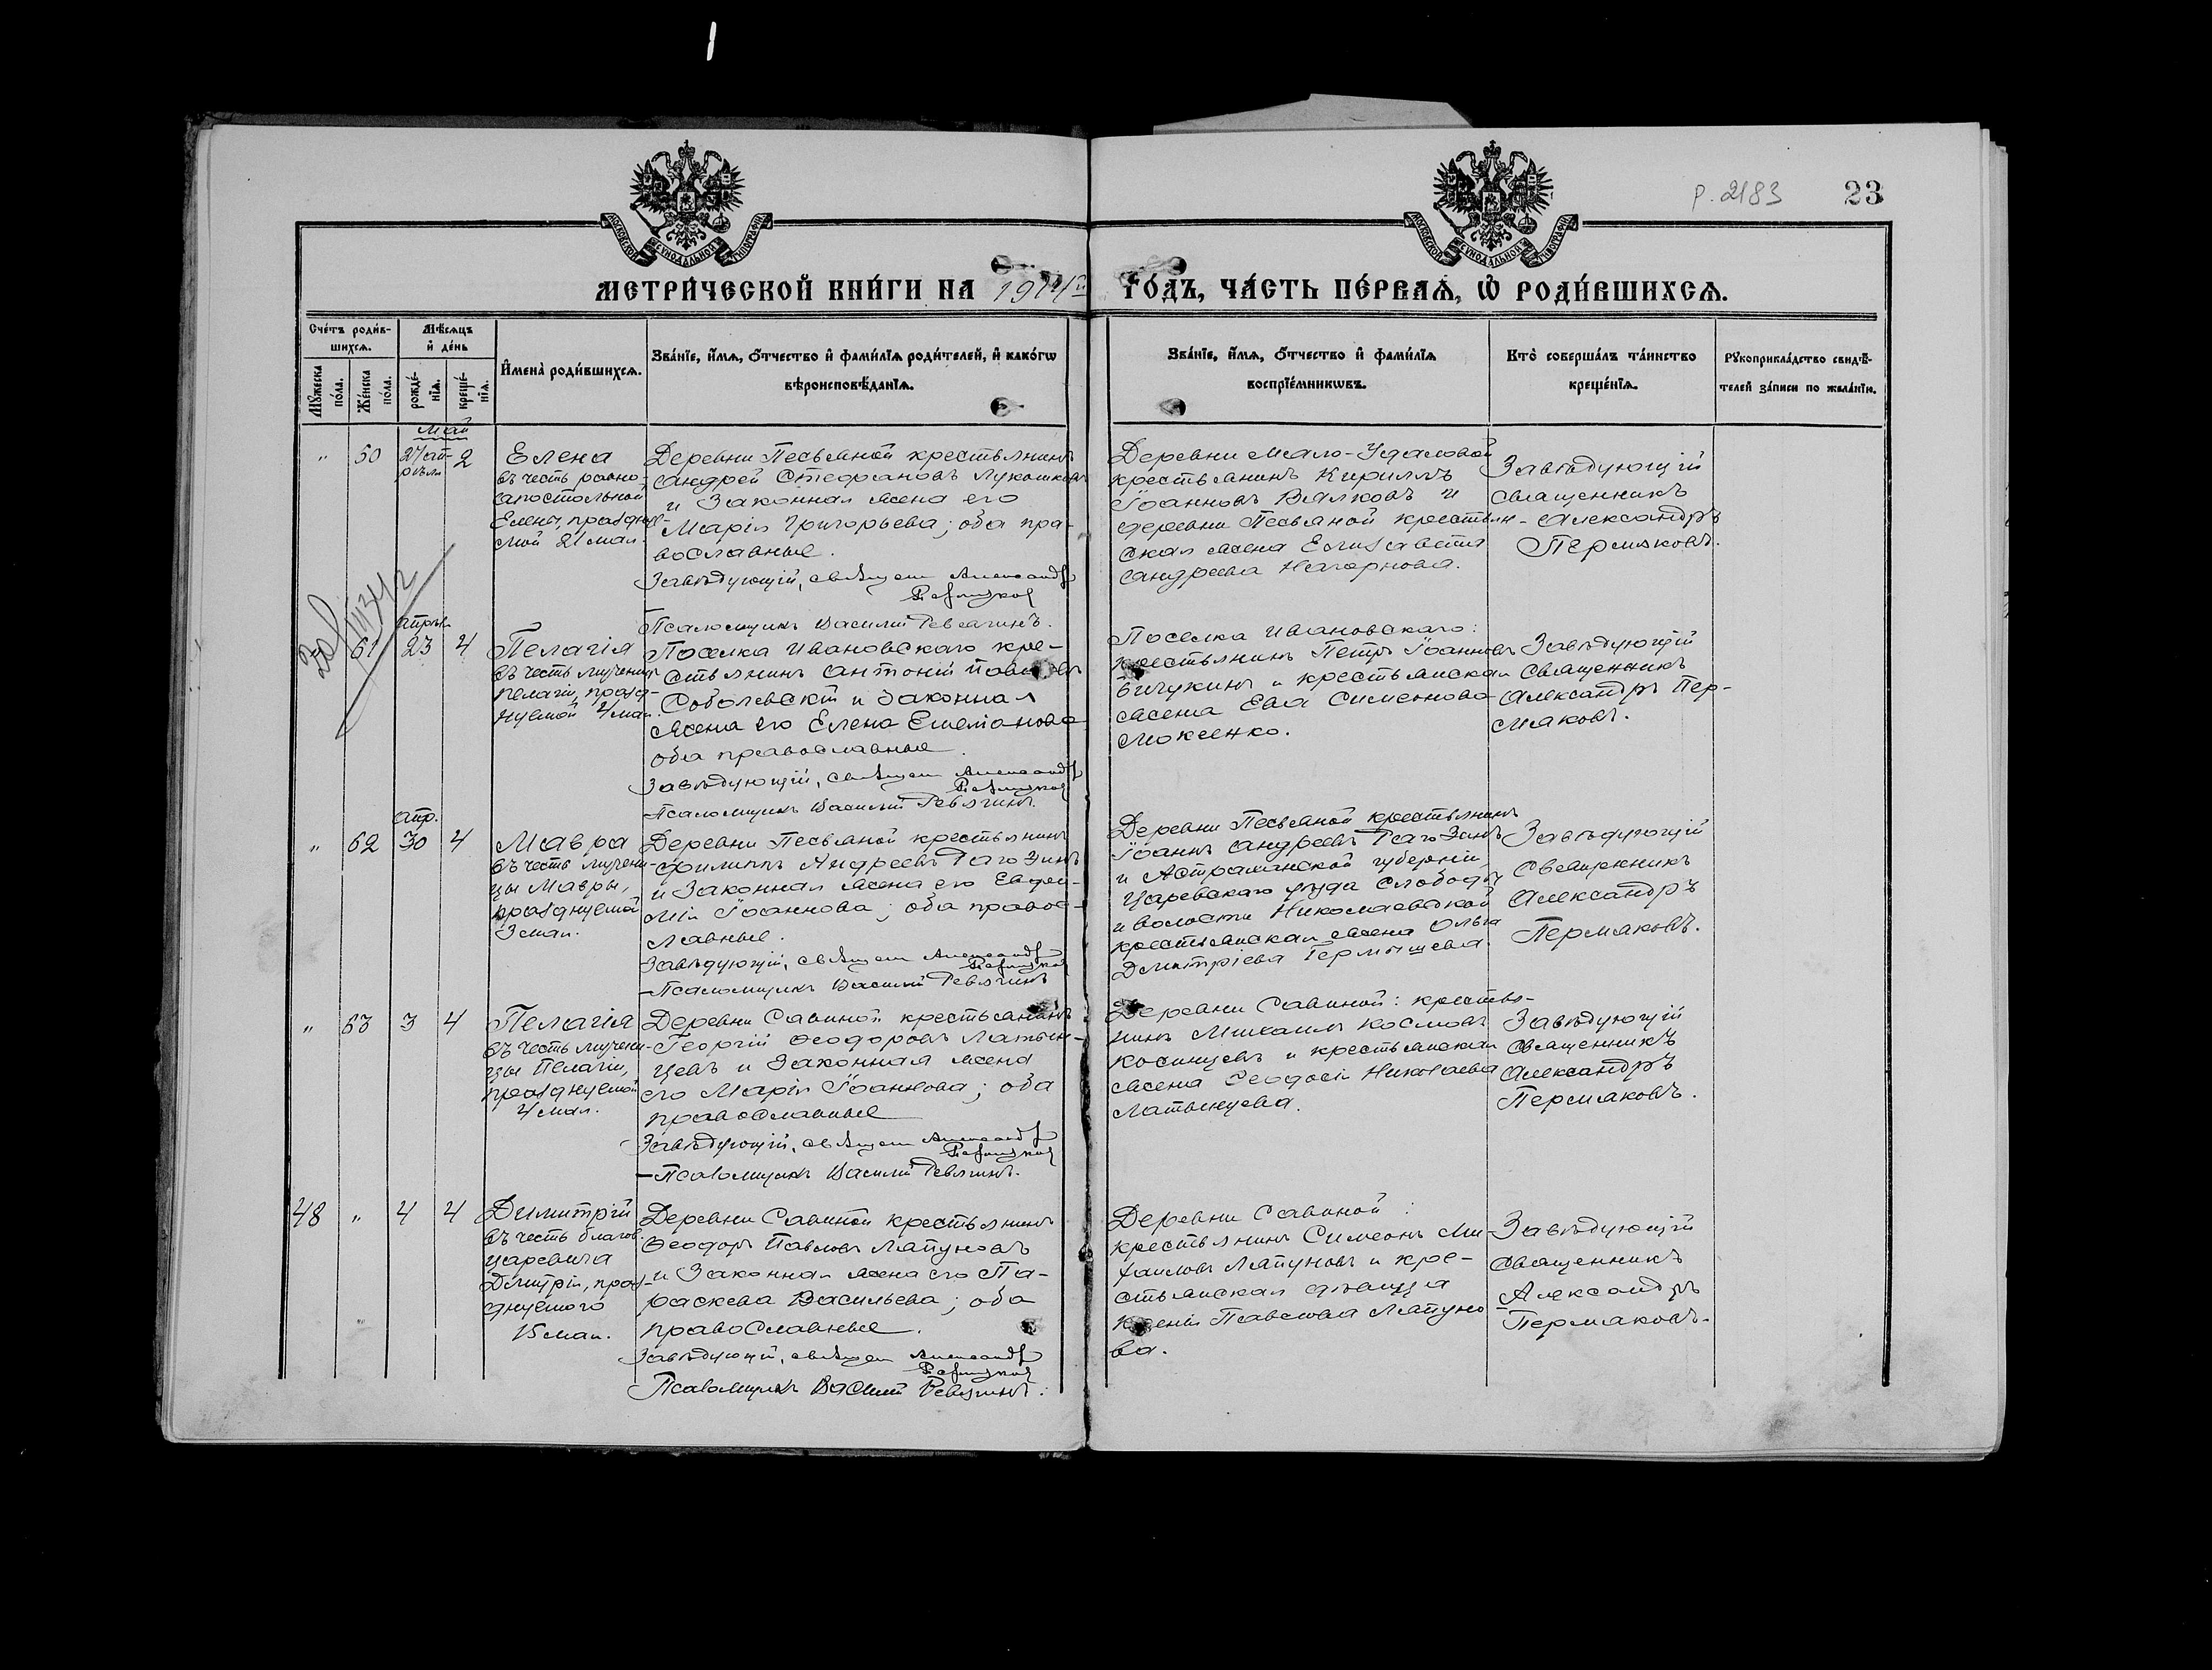 р. 2183
23
МОСКОВСКОЙ СѴНОДАЛЬНОЙ ТИПОГРАФІИ
МОСКОВСКОЙ СѴНОДАЛЬНОЙ ТИПОГРАФІИ
МЕТРИ́ЧЕСКОЙ КНИ́ГИ НА 1914й ГО́ДЪ, ЧА́СТЬ ПЕ́РВАѦ, Ѡ҆ РОДИ́ВШИХСѦ.
Сче́тъ роди́в-
шихсѧ.
Мꙋ́жеска по́ла.
Же́нска по́ла.
Мѣ́сѧцъ
и҆ де́нь
рожде́-
нїѧ.
креще́-
нїѧ.
И҆мена̀ роди́вшихсѧ.
Зва́нїе, и҆́мѧ, ѻ҆́тчество и҆ фами́лїѧ роди́телей, и҆ како́гѡ
вѣроисповѣ́данїѧ.
Зва́нїе, и҆́мѧ, ѻ҆́тчество и҆ фами́лїѧ
воспрїе́мникѡвъ.
Кто̀ соверша́лъ та́инство
креще́нїѧ.
Рꙋкоприкла́дство свидѣ́-
телей за́писи по жела́нїю.
май
"
60
27 ап-
рѣля
2
Елена
въ честь равно-
апостольной
Елены, праздну-
мой 21 мая.
Деревни Песьяной крестьянинъ
Андрей Стефановъ Лукошковъ
и законная жена его
Марія Григорьева; оба пра-
вославные.
Завѣдующій, священ Александръ
Пермяков
Псаломщикъ Василій Ревягинъ.
Деревни Мало-Удаловой
крестьянинъ Кириллъ
Іоанновъ Вялковъ и
деревни Песьяной крестьян-
ская жена Елизавета
Андреева Нагорнова.
Завѣдующій
священникъ
Александръ
Пермяковъ.
61
апрѣля
23
4
Пелагія
въ честь мучениц
Пелагіи, празд-
нуемой 4 мая.
Поселка Ивановскаго кре-
стьянинъ Антоній
Соболевскій и законная
жена его Елена
оба православные.
Завѣдующій, священ Александръ
Пермяков
Псаломщикъ Василій Ревягинъ.
Поселка Ивановскаго:
крестьянинъ Петръ Іоанновъ
Бичукинъ и крестьянская
жена Ева Симеонова
Мокеенко.
Завѣдующій
священникъ
Александръ Пер-
мяковъ.
"
62
апр.
30
4
Мавра
въ честь мучени-
цы Мавры,
празднуемой
3 мая.
Деревни Песьяной крестьянинъ
Филиппъ Андреевъ Рагозинъ
и законная жена его Евфи-
мія Іоаннова; оба правос-
лавные.
Завѣдующій, священ Александръ
Пермяков
Псаломщикъ Василій Ревягинъ
Деревни Песьяной крестьянинъ
Іоаннъ Андреевъ Рагозинъ
и Астраханской губерніи,
Царевскаго уѣзда слободы
и волости Николаевской
крестьянская жена Ольга
Дмитріева
Завѣдующій
Священникъ
Александръ
Пермяковъ.
"
63
3
4
Пелагія
въ честь мучени-
цы Пелагіи,
празднуемой
4 мая.
Деревни Савиной крестьянинъ
Георгій Ѳеодоровъ Латын-
цевъ и законная жена
его Марія Іоаннова; оба
православные
Завѣдующій, священ Александръ
Пермяков
Псаломщикъ Василій Ревягинъ.
Деревни Савиной: крестья-
нинъ Михаилъ Космовъ
Косинцевъ и крестьянская
жена Ѳеодосія Николаева
Латынцева.
Завѣдующій
Священникъ
Александръ
Пермяковъ.
48
"
4
4
Димитрій
въ честь благов.
царевича
Дмитрія, празд-
днуемого
15 мая.
Деревни Савиной крестьянинъ
Ѳеодоръ Павловъ Лапуновъ
и законная жена его Па-
раскева Васильева; оба
православные.
Завѣдующій, священ Александръ
Пермяков
Псаломщикъ Василій Ревягинъ.
Деревни Савиной:
крестьянинъ Симеонъ Ми-
хаиловъ Лапуновъ и кре-
стьянская дѣвица
Ксенія Павлова Лапуно
ва.
Завѣдующій
Священникъ
Александръ
Пермяковъ.